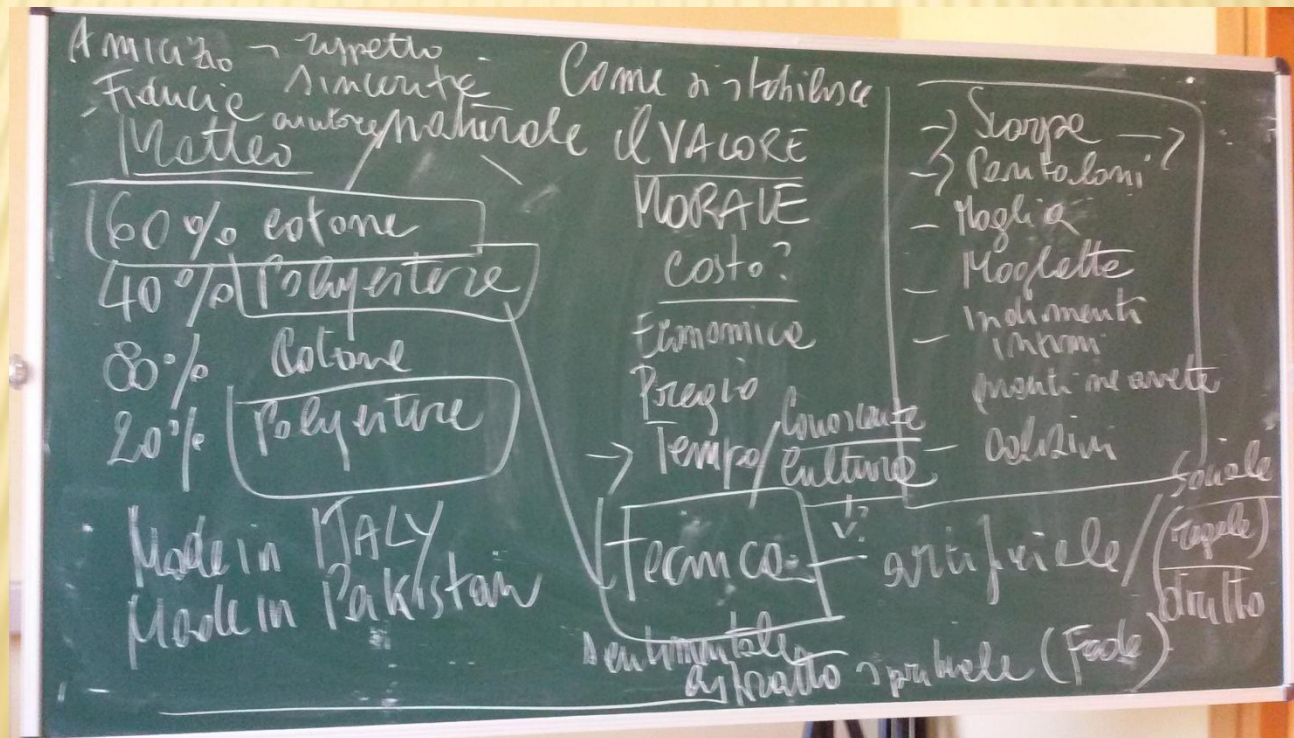 Amicizia → rispetto
Fiducia sincerità
aiutare
Matteo
naturale
60% cotone
40% Polyestere
80% Cotone
20% Polyestere
Made in ITALY
Made in Pakistan
Come si stabilisce
il VALORE
MORALE
costo?
Economico
Pregio
→ Tempo / Conoscenze
Cultura
Tecnica - artificiale /
sentimentale
astratto spirituale (Fede)
→ Scarpe →
→ Pantaloni
- Maglia
- Magliette
- Indumenti
intimi
quanti ne avete
- calzini
Sociale
(regole)
diritto